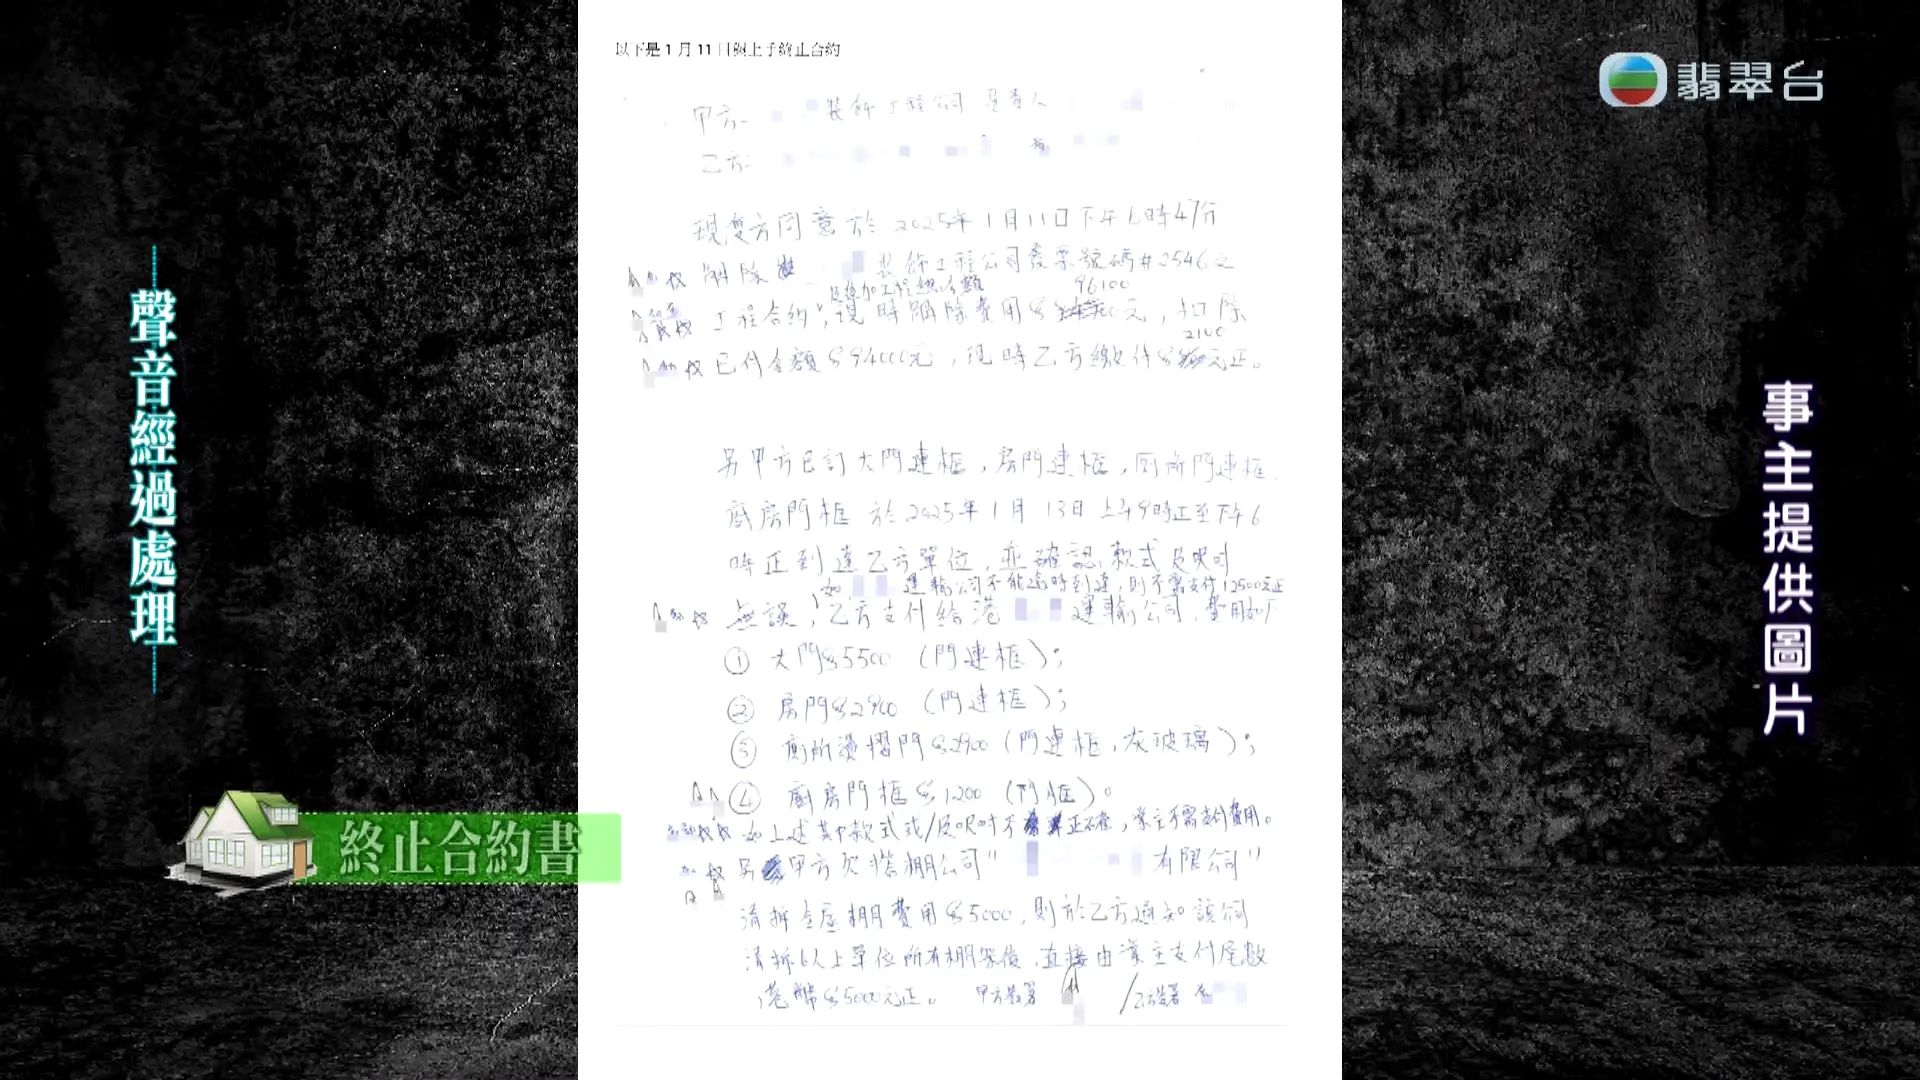 以下是1月11日與上手終止合約
翡翠台
甲方: 裝飾工程公司 負責人
乙方:
現雙方同意於 2025年1月11日下午6時47分
解除 裝飾工程公司發票號碼#2546之
及追加工程總金額 96100
工程合約,現時解除費用$ 元,扣除
2100
已付金額$94000元,現時乙方繳付$ 元正。
另甲方已訂大門連框,房門連框,廁所門連框,
廚房門框 於2025年1月13日上午9時正至下午6
時正到達乙方單位,並確認款式及呎吋
如 運輸公司不能過時到達,則不需支付12500元正
無誤,乙方支付給港 運輸公司,費用如下
① 大門$5500 (門連框);
② 房門$2900 (門連框);
③ 廁所摺門$2900 (門連框,灰玻璃);
④ 廚房門框$1200 (門框)。
如上述其中款式或/及呎吋不正確,業主不需支付費用。
另甲方欠搭棚公司" 有限公司"
清拆全屋棚費用$5000,則於乙方通知該公司
清拆以上單位所有棚架後,直接由業主支付尾數
港幣$5000元正。 甲方簽署 /乙方簽署
聲音經過處理
事主提供圖片
終止合約書